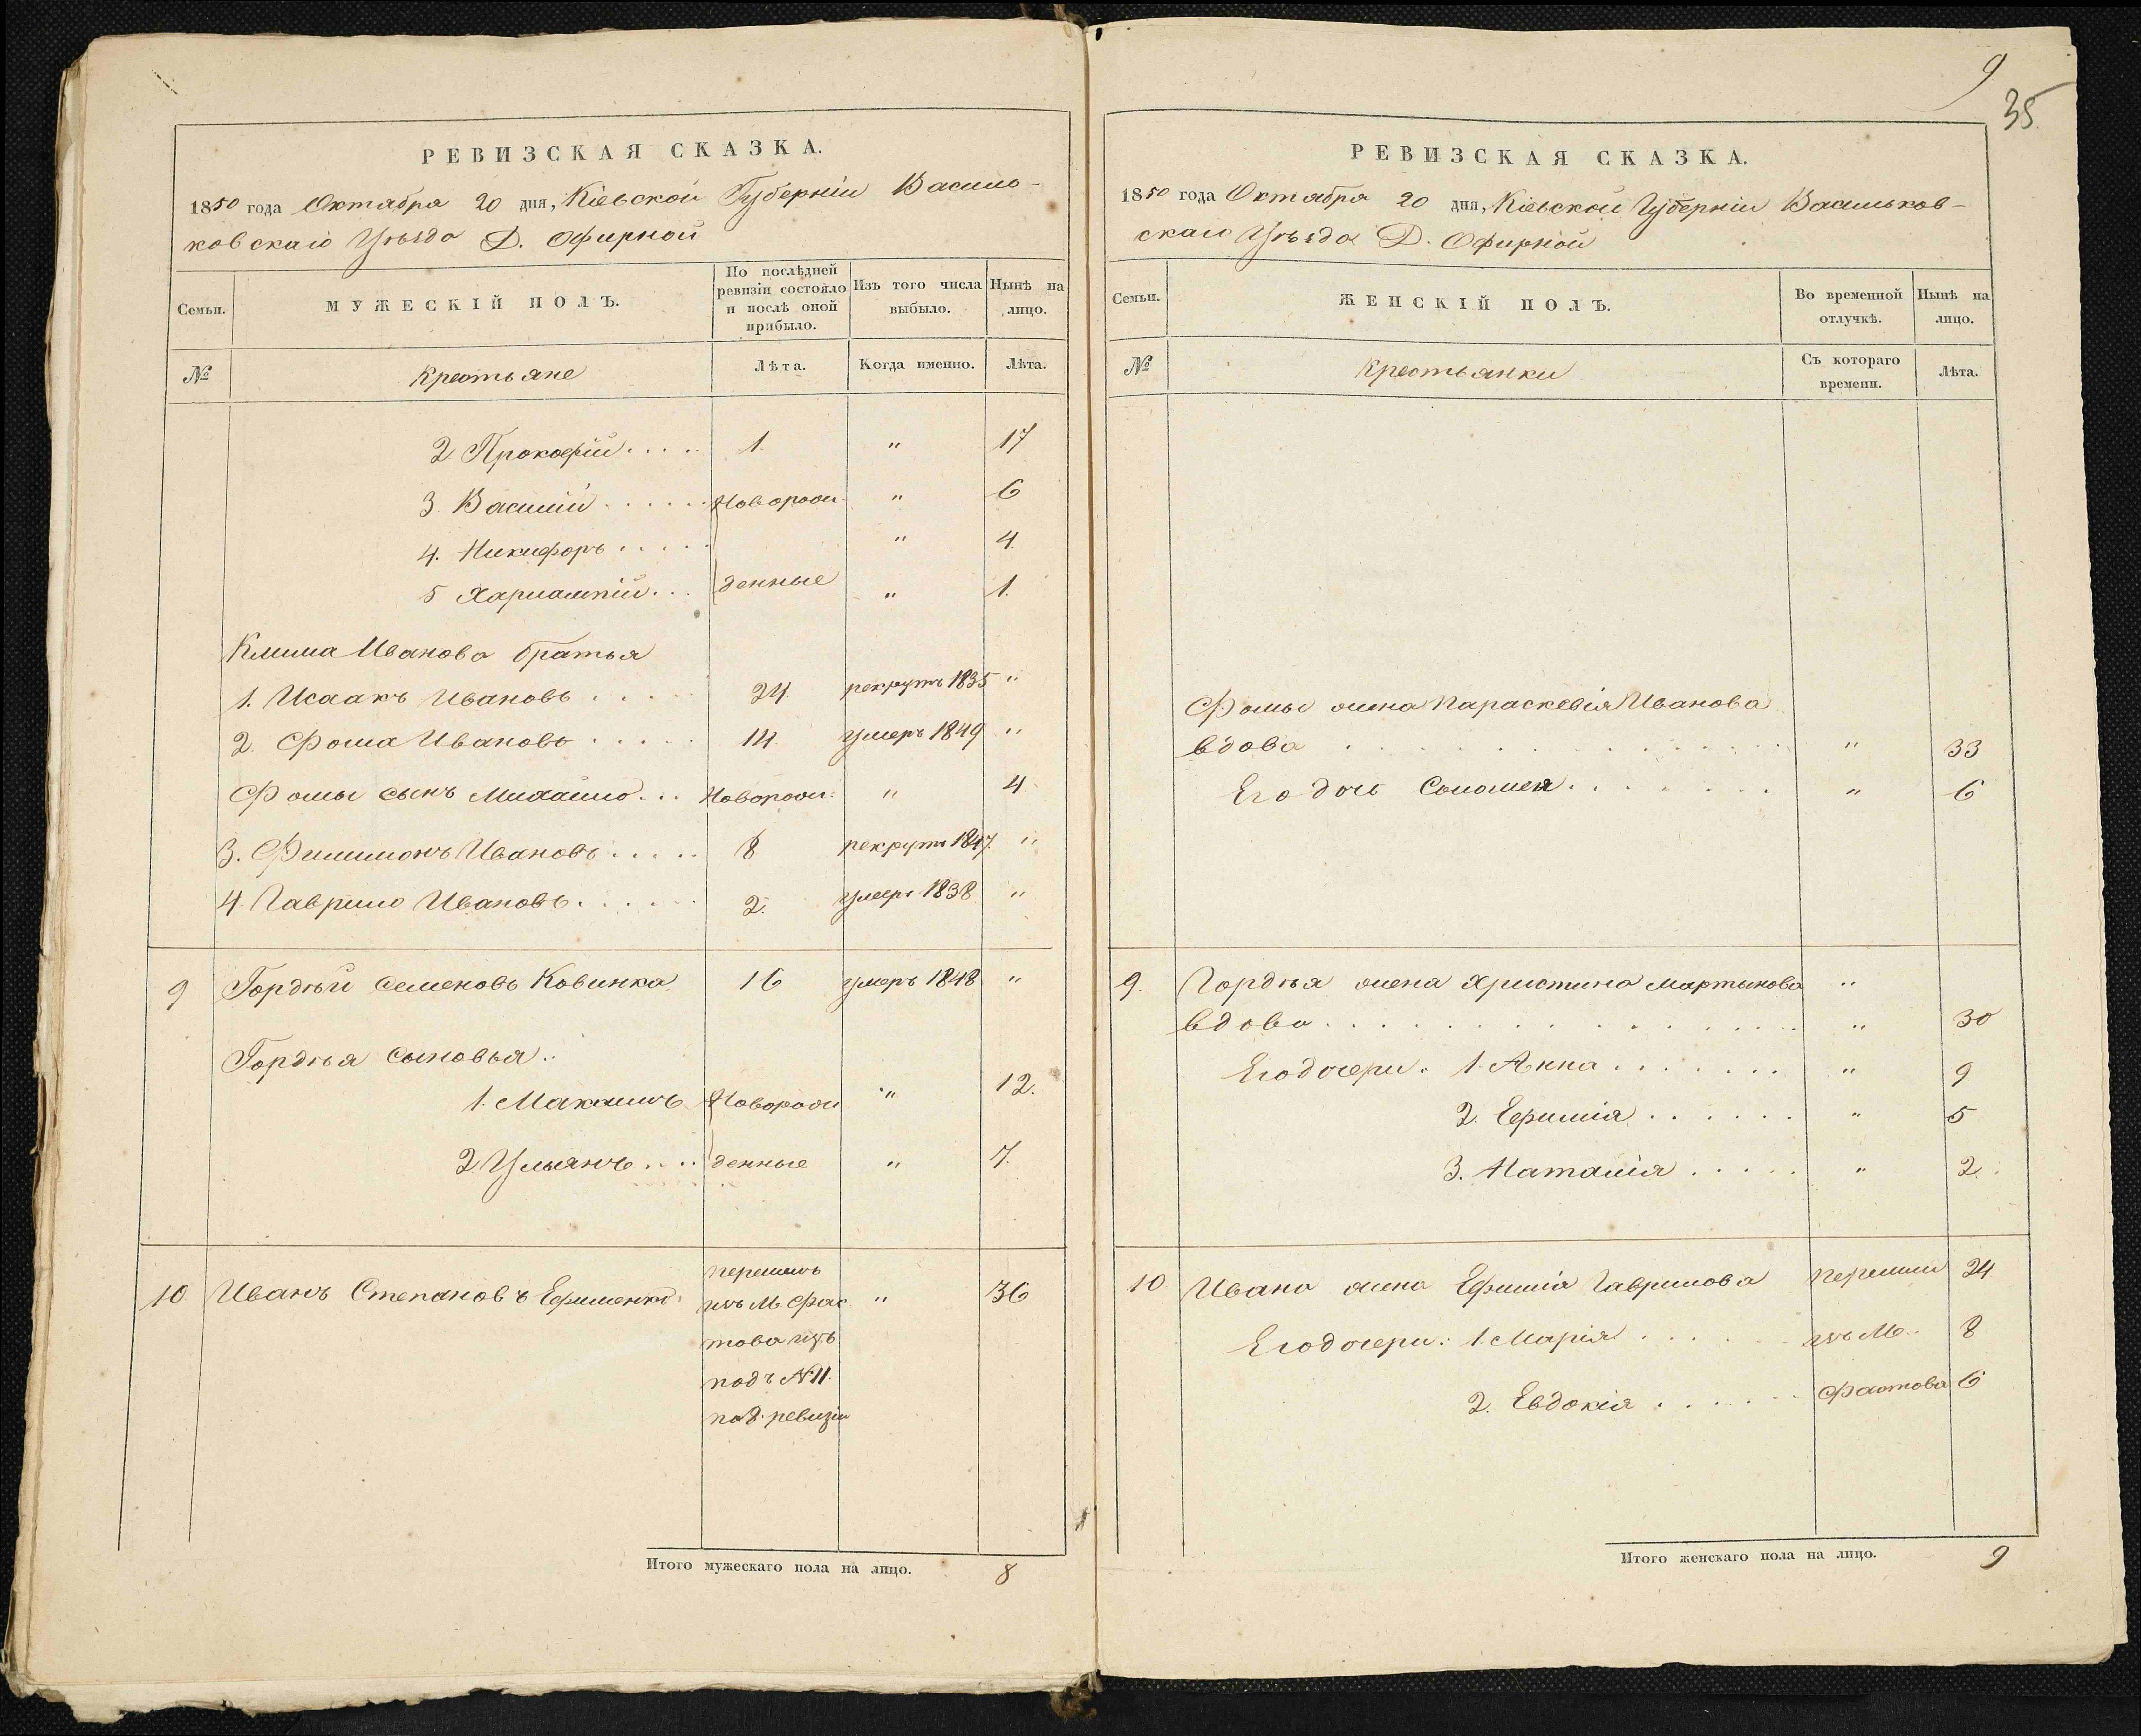 РЕВИЗСКАЯ СКАЗКА.
1850 года Октября 20 дня, Кіевской Губерніи Василь-
ковскаго Уѣзда Д. Офирной
Семьи.
МУЖЕСКІЙ ПОЛЪ.
По послѣдней
ревизіи состояло
и послѣ оной
прибыло.
Изъ того числа
выбыло.
Нынѣ на
лицо.
№
Крестьяне
Лѣта.
Когда именно.
Лѣта.
2. Прокофій.... 1. " 17
3. Василій...... Новорож- " 6
4. Никифоръ..... " 4.
5 Харлампій... денные " 1.
Клима Иванова братья
1. Исаакъ Ивановъ.... 24. рекрутъ 1835 "
2. Фома Ивановъ..... 14. умеръ 1849 "
Фомы сынъ Михайло... Новорож. " 4.
3. Филимонъ Ивановъ..... 8 рекрутъ 1847. "
4. Гаврило Ивановъ...... 2. умеръ 1838 "
9 Гордѣй Семеновъ Ковинка 16 умеръ 1848 "
Гордѣя сыновья:
1. Максимъ Новорож " 12.
2 Ульянъ.... денные " 7.
10 Иванъ Степановъ Ефименко перешелъ
изъ М. Фас " 36
това изъ
подъ № 11.
под. ревизіи
Итого мужескаго пола на лицо. 8
9
35.
РЕВИЗСКАЯ СКАЗКА.
1850 года Октября 20 дня, Кіевской Губерніи Васильков-
скаго Уѣзда Д. Офирной
Семьи.
ЖЕНСКІЙ ПОЛЪ.
Во временной
отлучкѣ.
Нынѣ на
лицо.
№
Крестьянки
Съ котораго
времени.
Лѣта.
Фомы жена Параскевія Иванова
вдова " 33
Его дочь Соломея....... " 6
9. Гордѣя жена Христина Мартинова "
вдова " 30
Его дочери: 1. Анна....... " 9
2. Ефимія...... " 5
3. Наталія..... " 2.
10 Ивана жена Ефимія Гаврилова перешли 24
Его дочери: 1. Марія.... изъ М. 8
2. Евдокія...... Фастова 6
Итого женскаго пола на лицо. 9